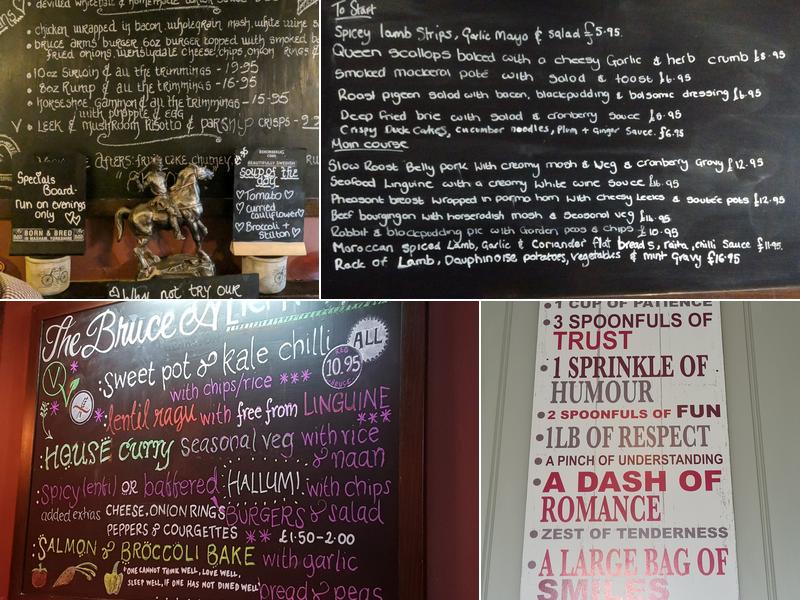 devilled whitebait & homemade
chicken wrapped in bacon, wholegrain mash, white wine s
bruce arms burger 6oz burger topped with smoked b
fried onions, wensleydale cheese, chips, onion rings &
10oz Sirloin & all the trimmings - 19-95
8oz Rump & all the trimmings - 16-95
horseshoe Gammon & all the trimmings - 15-95
with pineapple & egg
V • LEEK & mushroom Risotto & parsnip CRISPS -
Specials
Board-
run on evenings
only
BORN & BRED
IN MASHAM, YORKSHIRE
BEAUTIFULLY SWEDISH
soup of the
day
Tomato
curried
cauliflower
Broccoli +
Stilton
Why not try our
To Start
Spicey lamb Strips, Garlic Mayo & salad £5.95
Queen scallops baked with a cheesy Garlic & herb crumb £8.95
Smoked mackeral paté with salad & toast £6.95
Roast pigeon salad with bacon, blackpudding & balsamic dressing £6.95
Deep Fried brie with salad & cranberry sauce £6.95
Crispy Duck Cakes, cucumber noodles, Plum + Ginger Sauce. £6.95
Main course
Slow Roast Belly pork with creamy mash & Veg & cranberry Gravy £12.95
Seafood Linguine with a creamy White wine Sauce £11.95
Pheasant breast wrapped in parma ham with cheesy Leeks & sautée pots £12.95
Beef bourgnyon with horseradish mash & Seasonal veg £11.95
Rabbit & blackpudding pie with Garden peas & chips £10.95
Moroccan spiced Lamb, Garlic & Coriander flat breads, raita, chilli Sauce £11.95.
Rack of Lamb, Dauphinoise potatoes, vegetables & mint Gravy £16.95
The Bruce
ALL
REG
10.95
:sweet pot & kale chilli
with chips/rice ***
V
:lentil ragu with free from LINGUINE
***
:HOUSE curry seasonal veg with rice
& naan
:spicy lentil or battered HALLUMI with chips
BURGERS & salad
added extras CHEESE, ONION RINGS
PEPPERS & COURGETTES ** £1.50-2.00
:SALMON & BROCCOLI BAKE with garlic
bread & peas
"ONE CANNOT THINK WELL, LOVE WELL,
SLEEP WELL, IF ONE HAS NOT DINED WELL"
• 1 CUP OF PATIENCE
• 3 SPOONFULS OF
TRUST
• 1 SPRINKLE OF
HUMOUR
• 2 SPOONFULS OF FUN
• 1LB OF RESPECT
• A PINCH OF UNDERSTANDING
• A DASH OF
ROMANCE
• ZEST OF TENDERNESS
• A LARGE BAG OF
SMILES